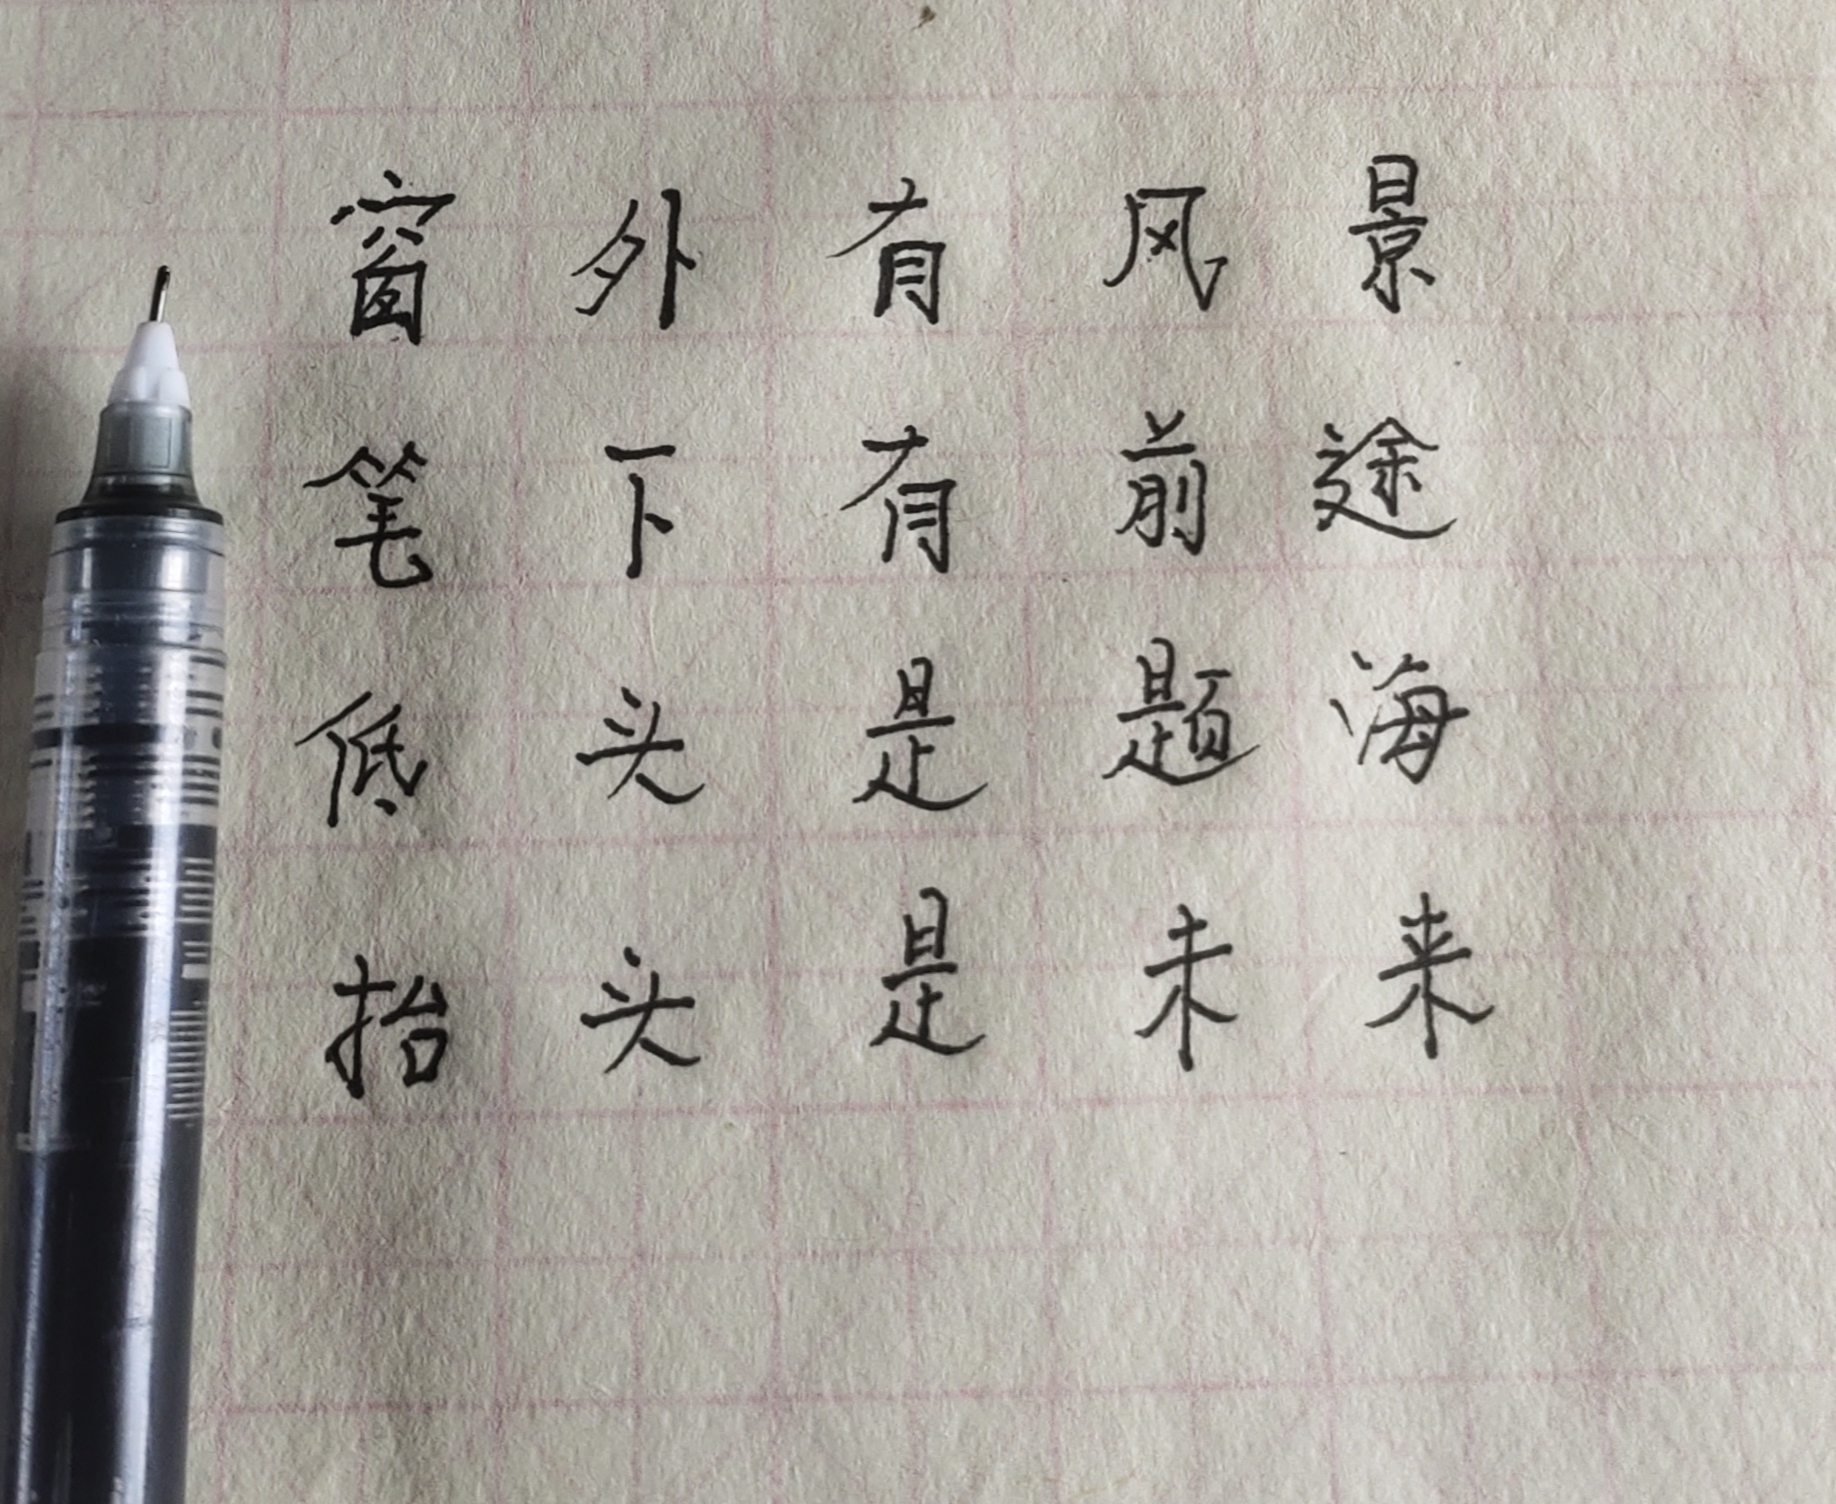 窗外有风景
笔下有前途
低头是题海
抬头是未来